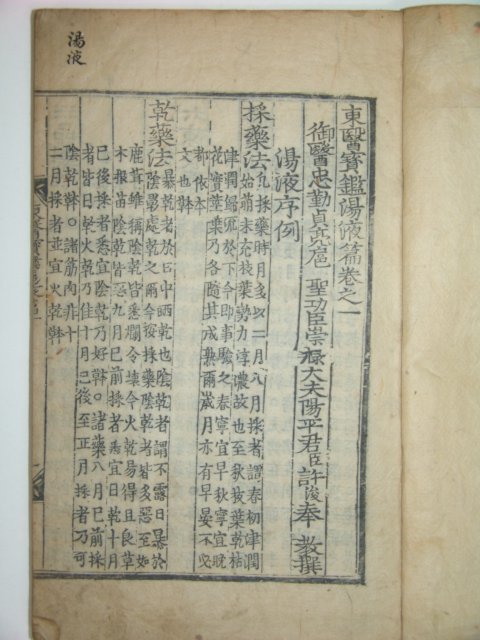 湯液
東醫寶鑑湯液篇卷之一
御醫忠勤貞亮扈 聖功臣崇祿大夫陽平君臣許浚奉 敎撰
湯液序例
採藥法 凡採藥時月多以二月八月採者謂春初津潤
始萌未充枝葉勢力淳濃故也至秋枝葉乾枯
津潤歸流於下今即事驗之春寧宜早秋寧宜晚
花實莖葉乃各隨其成熟爾歲月亦有早晏不必
都依本
文也本草
乾藥法 暴乾者於日中晒乾也陰乾者謂不露日暴於
陰影處乾之爾今按採藥陰乾者皆多惡至如
鹿茸雖稱陰乾皆悉爛令壞今火乾易得且良草
木根苗陰乾皆惡九月已前採者悉宜日乾十月
已後採者悉宜陰乾乃好本草○諸藥八月已前採
者皆日乾火乾乃佳十月已後至正月採者乃可
陰乾本草○諸筋肉非十
二月採者並宜火乾本草